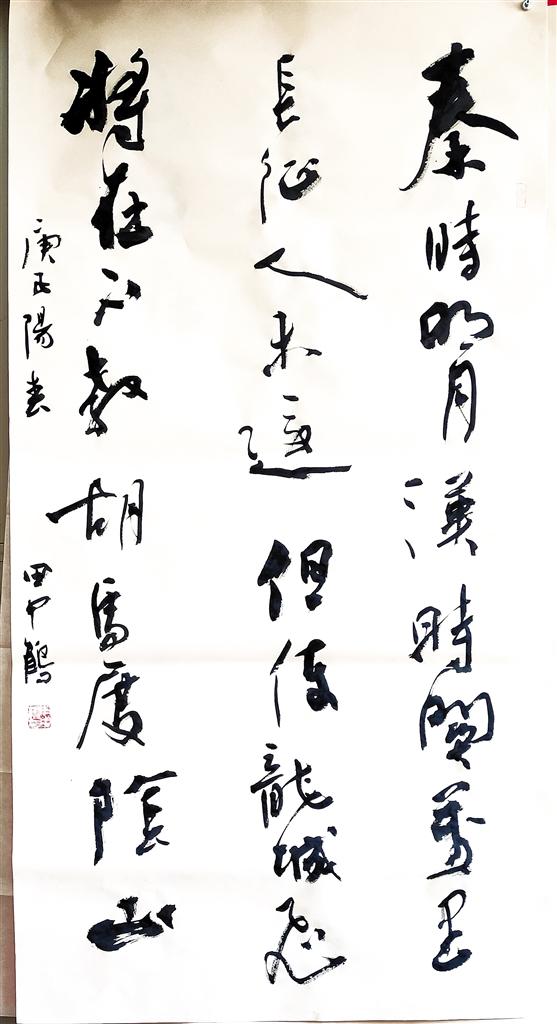 秦時明月漢時關萬里
長征人未還但使龍城飛
將在不教胡馬度陰山
庚子陽春 田中